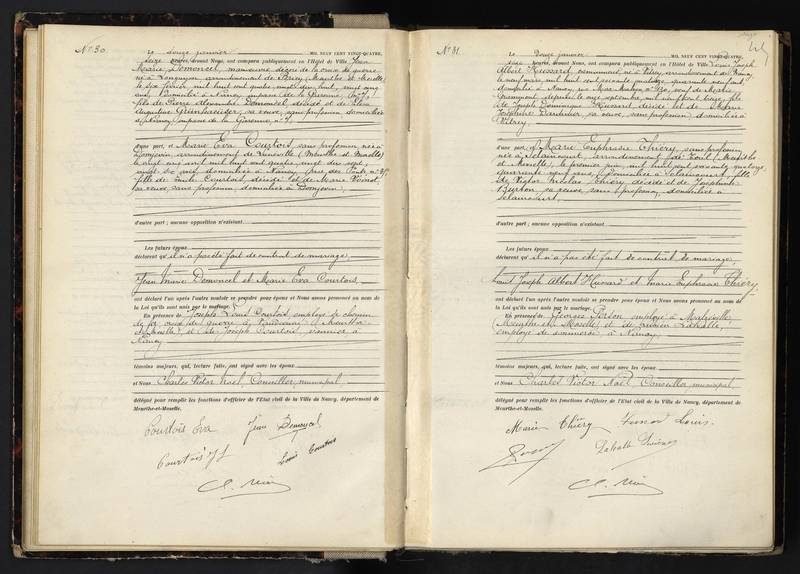 N° 30
Le douze janvier MIL NEUF CENT VINGT-QUATRE,
seize heures, devant Nous, ont comparu publiquement en l'Hôtel de Ville Jean
Marie Demoncel, manœuvre, décoré de la croix de guerre
né à Longuyon arrondissement de Briey, Meurthe et Moselle
le six février mil huit cent quatre vingt dix huit, vingt cinq
ans, domicilié à Nancy, impasse de la Garenne
fils de Pierre Alexandre Demoncel, décédé et de
Augustine sa veuve, sans profession domiciliée
à Nancy impasse de la Garenne n° 7,
d'une part, et Marie Eva Courtois, sans profession, née à
Domjevin, arrondissement de Lunéville (Meurthe et Moselle)
le vingt mil huit cent quatre vingt dix sept,
vingt six ans, domiciliée à Nancy, rue des Ponts n°
fille de Courtois, décédé et de Marie
sa veuve sans profession domiciliée à Domjevin,
d'autre part ; aucune opposition n'existant
Les futurs époux
déclarent qu'il n'a pas été fait de contrat de mariage,
Jean Marie Demoncel et Marie Eva Courtois
ont déclaré l'un après l'autre vouloir se prendre pour époux et Nous avons prononcé au nom de
la Loi qu'ils sont unis par le mariage.
En présence de Joseph Louis Courtois employé de chemin
de fer croix de guerre à (Meurthe
et Moselle) et de Joseph Courtois, vannier à
Nancy
témoins majeurs, qui, lecture faite, ont signé avec les époux
et Nous Charles Victor Noël, Conseiller municipal
délégué pour remplir les fonctions d'officier de l'Etat civil de la Ville de Nancy, département de
Meurthe-et-Moselle.
Courtois Eva Jean Demoncel
Courtois Louis Courtois
C. Noël
N° 31
Le douze janvier MIL NEUF CENT VINGT-QUATRE,
seize heures, devant Nous, ont comparu publiquement en l'Hôtel de Ville Louis Joseph
Albert Hussard, né à Vitrey, arrondissement de Nancy
le neuf mars mil huit cent soixante quatorze, quarante neuf ans
domicilié à Nancy, rue veuf de Marie
depuis le onze septembre mil neuf cent treize, fils
de Joseph Dominique Hussard, décédé et de Marie
Joséphine sa veuve, sans profession, domiciliée à
Vitrey,
d'une part, et Marie Euphrasie Thiéry, sans profession
née à Selaincourt, arrondissement de Toul (Meurthe
et Moselle), le premier juin mil huit cent soixante quatorze
quarante neuf ans, domiciliée à Selaincourt, fille
de Victor Nicolas Thiéry décédé et de Joséphine
Burton, sa veuve sans profession, domiciliée à
Selaincourt,
d'autre part ; aucune opposition n'existant
Les futurs époux
déclarent qu'il n'a pas été fait de contrat de mariage,
Louis Joseph Albert Hussard et Marie Euphrasie Thiéry
ont déclaré l'un après l'autre vouloir se prendre pour époux et Nous avons prononcé au nom de
la Loi qu'ils sont unis par le mariage.
En présence de Georges Person employé à Malzéville,
Meurthe et Moselle, et de Lucien Lahalle,
employé de commerce à Nancy,
témoins majeurs, qui, lecture faite, ont signé avec les époux
et Nous Charles Victor Noël, Conseiller municipal
délégué pour remplir les fonctions d'officier de l'Etat civil de la Ville de Nancy, département de
Meurthe-et-Moselle.
Marie Thiéry Louis
Lahalle Lucien
C. Noël